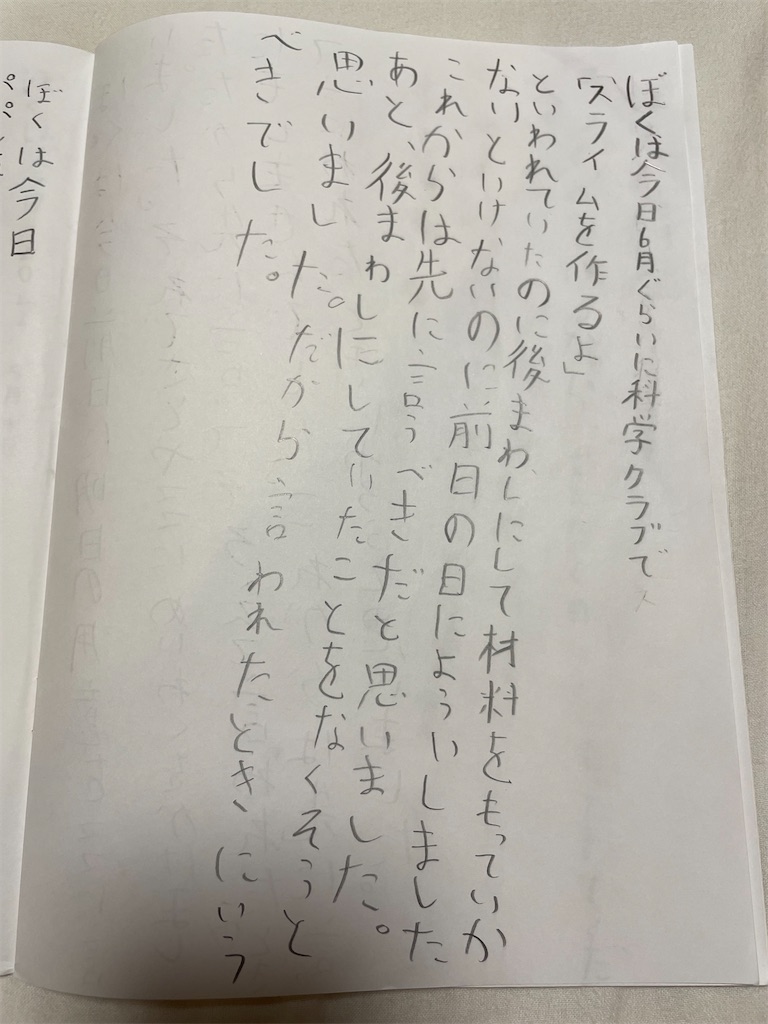 ぼくは今日6月ぐらいに科学クラブで
「スライムを作るよ」
といわれていたのに後まわしにして材料をもっていか
ないといけないのに前日の日によういしました
これからは先に言うべきだと思いました。
あと、後まわしにしていたことをなくそうと
思いました。だから言われたときにいう
べきでした。
ぼくは今日